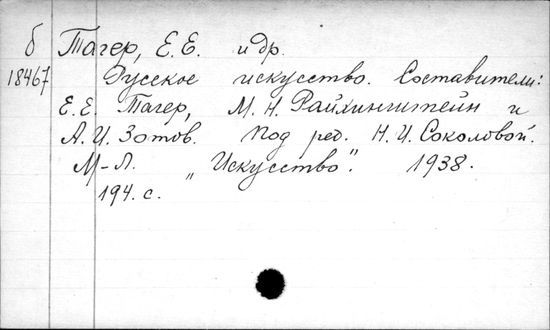 б Тагер, Е.Е. и др.
18467 Русское искусство. Составители:
Е.Е. Тагер, М.Н. Райхинштейн и
А.И. Зотов. Под ред. Н.И. Соколовой.
М-Л. "Искусство". 1938.
194. с.